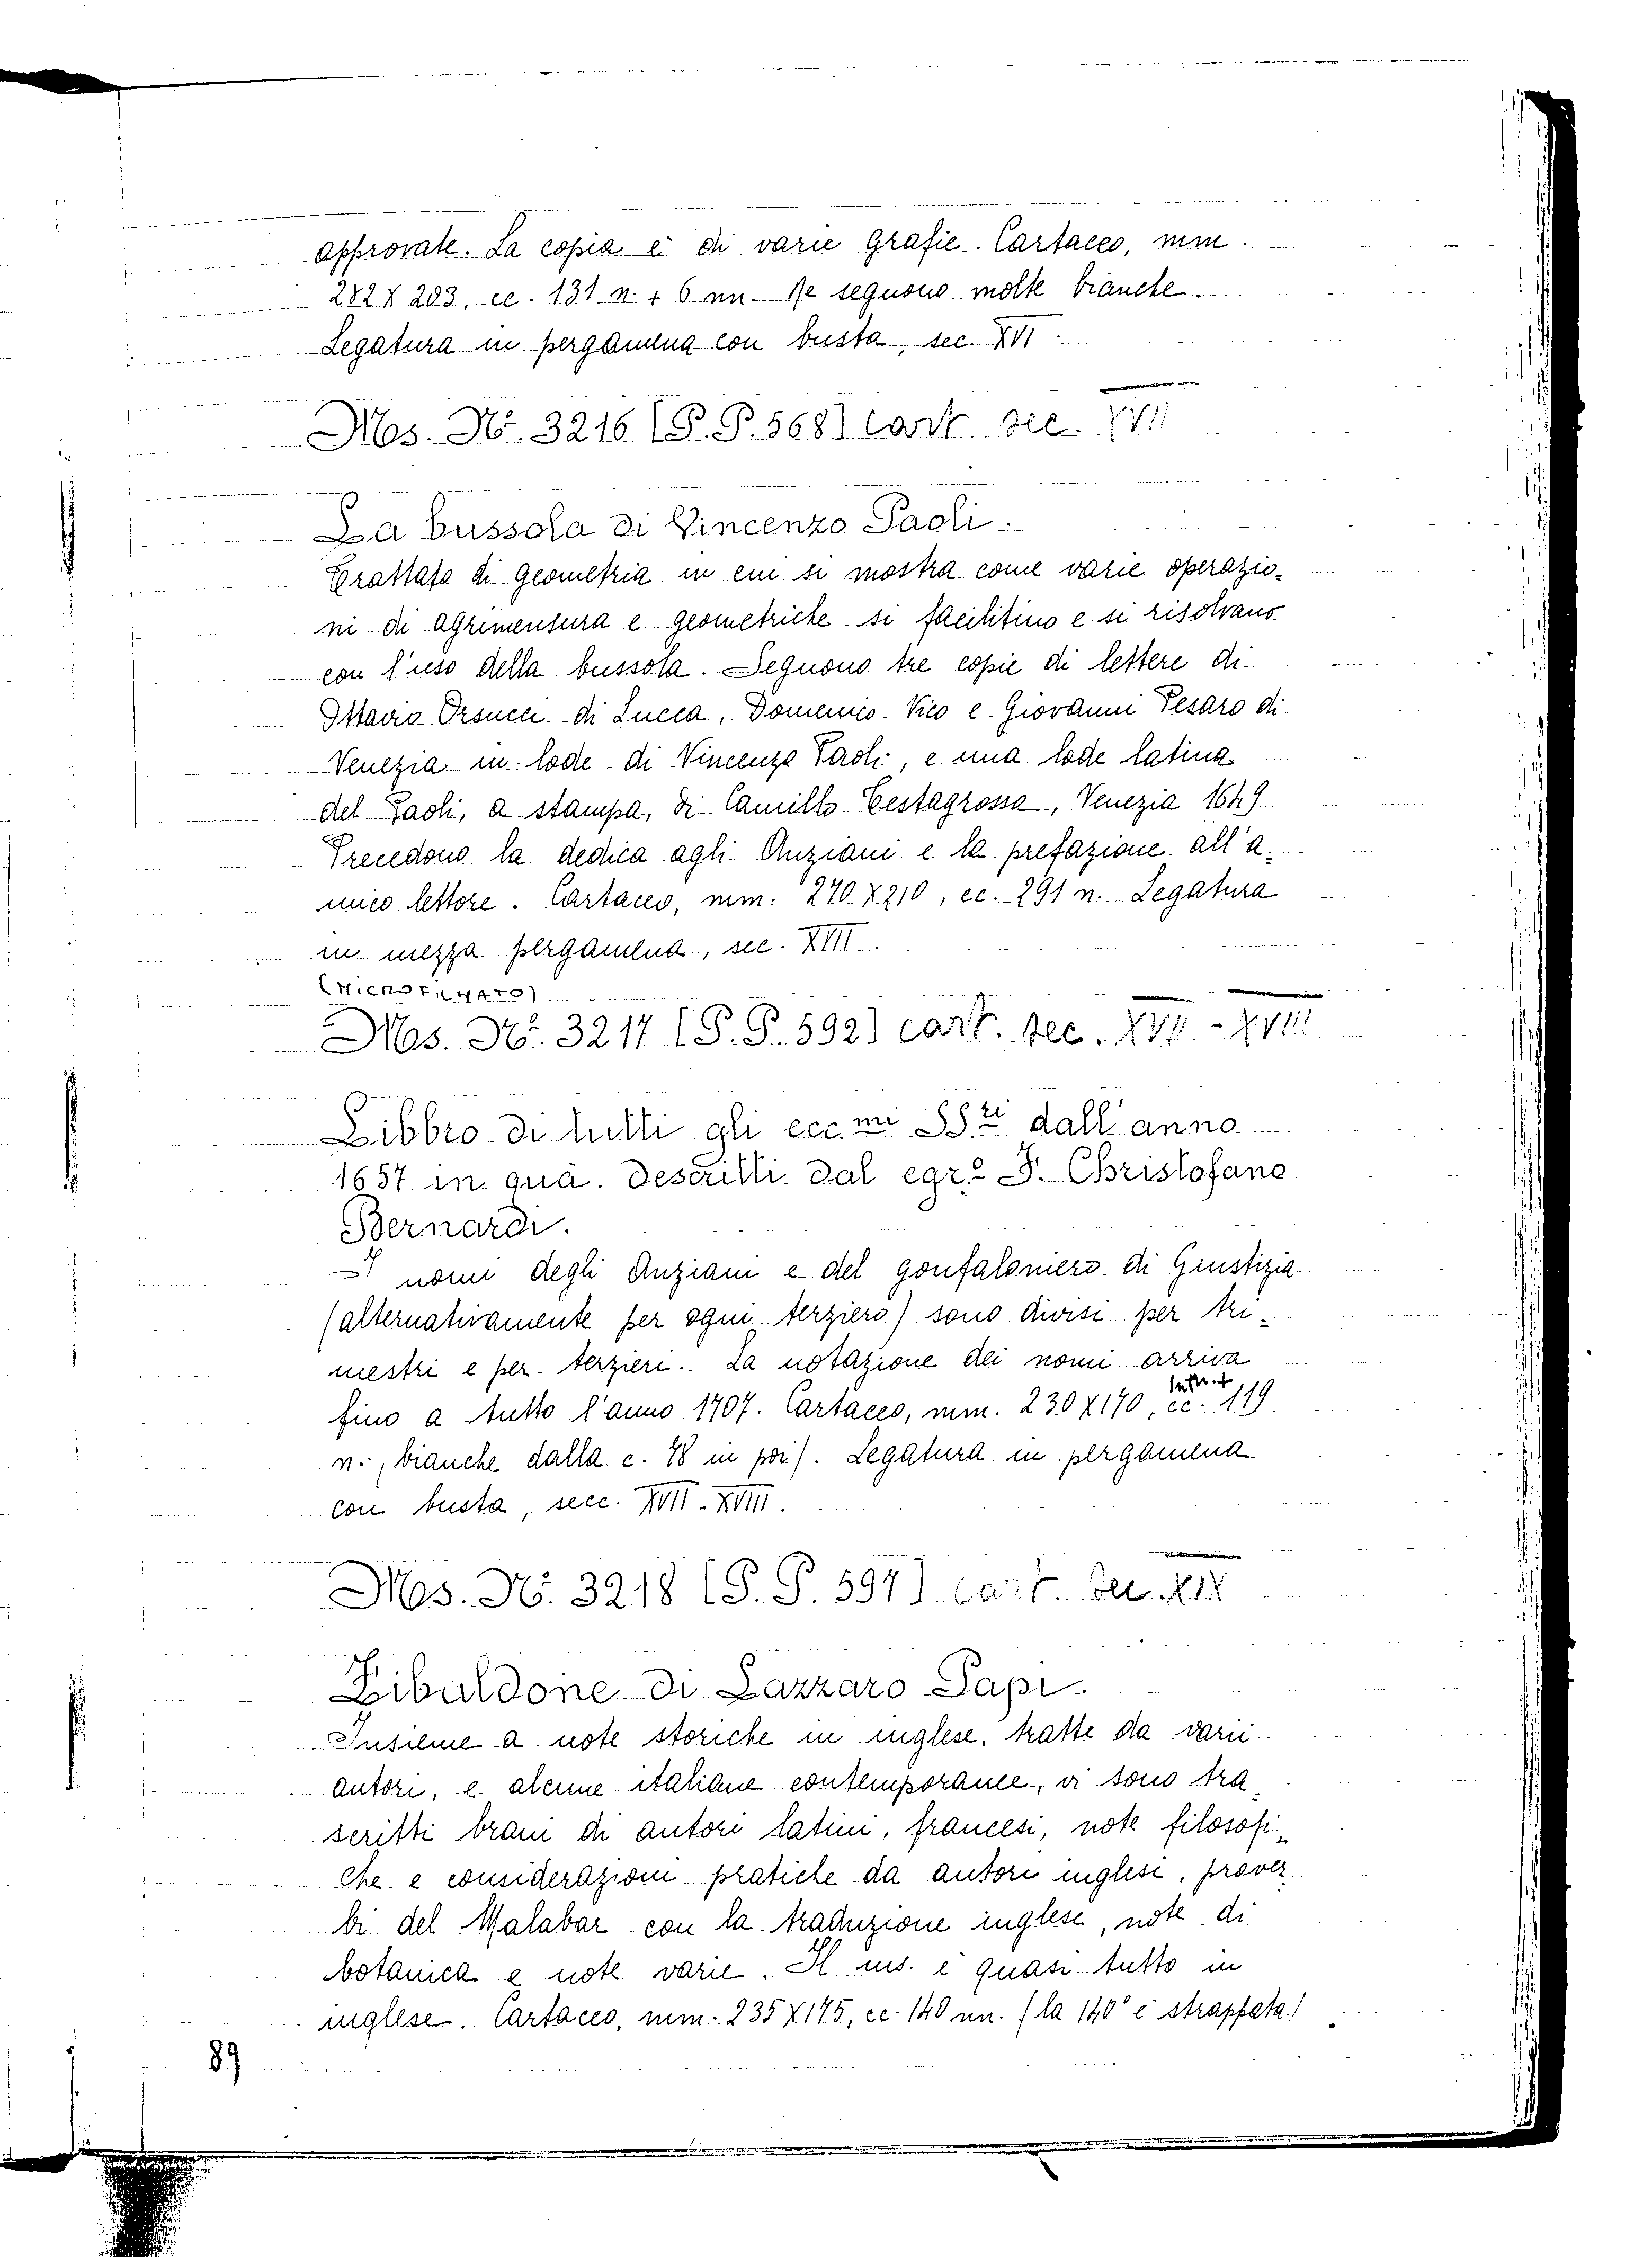 approvate. La copia è di varie grafie. Cartaceo, mm.
282 X 203, cc. 131 n. + 6 nn. Ne seguono molte bianche.
Legatura in pergamena con busta, sec. XVI.
Mss. N. 3216 (P. P. 568) cart. sec. XVII
La bussola di Vincenzo Paoli.
Trattato di geometria in cui si mostra come varie operazio-
ni di agrimensura e geometriche si facilitino e si risolvano
con l'uso della bussola. Seguono tre copie di lettere di
Ottavio Orsucci di Lucca, Domenico Vico e Giovanni Pesaro di
Venezia in lode di Vincenzo Paoli, e una lode latina
del Paoli, a stampa, di Camillo Testagrossa, Venezia 1649
Precedono la dedica agli Anziani e la prefazione all'a-
mico lettore. Cartaceo, mm. 270 X 210, cc. 291 n. Legatura
in mezza pergamena, sec. XVII.
(MICROFILMATO)
Mss. N. 3217 (P. P. 592) cart. sec. XVII - XVIII
Libbro di tutti gli ecc.mi SS.ri dall'anno
1657 in quà. Descritti dal egr.o S. Christofano
Bernardi.
I nomi degli Anziani e del gonfaloniero di Giustizia
(alternativamente per ogni terziero) sono divisi per tri-
mestri e per terzieri. La notazione dei nomi arriva
fino a tutto l'anno 1707. Cartaceo, mm. 230 X 170, cc. 119
n., bianche dalla c. 78 in poi). Legatura in pergamena
con busta, secc. XVII - XVIII.
Mss. N. 3218 (P. P. 594) cart. sec. XIX
Zibaldone di Lazzaro Papi.
Insieme a note storiche in inglese, tratte da varii
autori, e alcune italiane contemporanee, vi sono tra-
scritti brani di autori latini, francesi, note filosofi-
che e considerazioni pratiche da autori inglesi, prover
bi del Malabar con la traduzione inglese, note di
botanica e note varie. Il ms. è quasi tutto in
inglese. Cartaceo, mm. 235 X 175, cc. 140 nn. (la 140° è strappata)
89